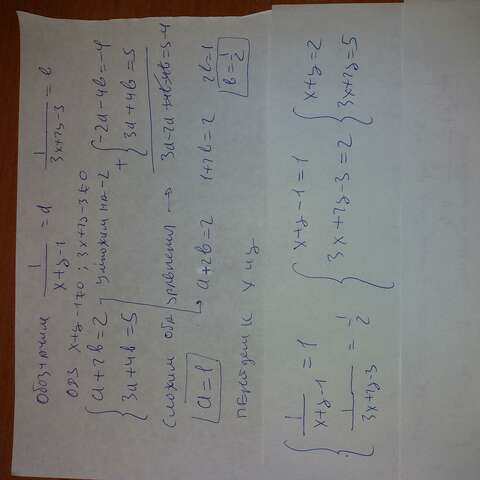 Обозначим 1/(x+y-1) = a   1/(3x+7y-3) = b
ОДЗ x+y-1≠0 ; 3x+7y-3≠0
{a+2b=2 умножим на -2 + {-2a-4b=-4
{3a+4b=5   {3a+4b=5
Сложим оба уравнения → 3a-2a+4b-4b=5-4
a=1   a+2b=2   1+2b=2   2b=1   b=1/2
перейдем к x и y
{1/(x+y-1) = 1   {x+y-1=1   {x+y=2
{1/(3x+7y-3) = 1/2   {3x+7y-3=2   {3x+7y=5